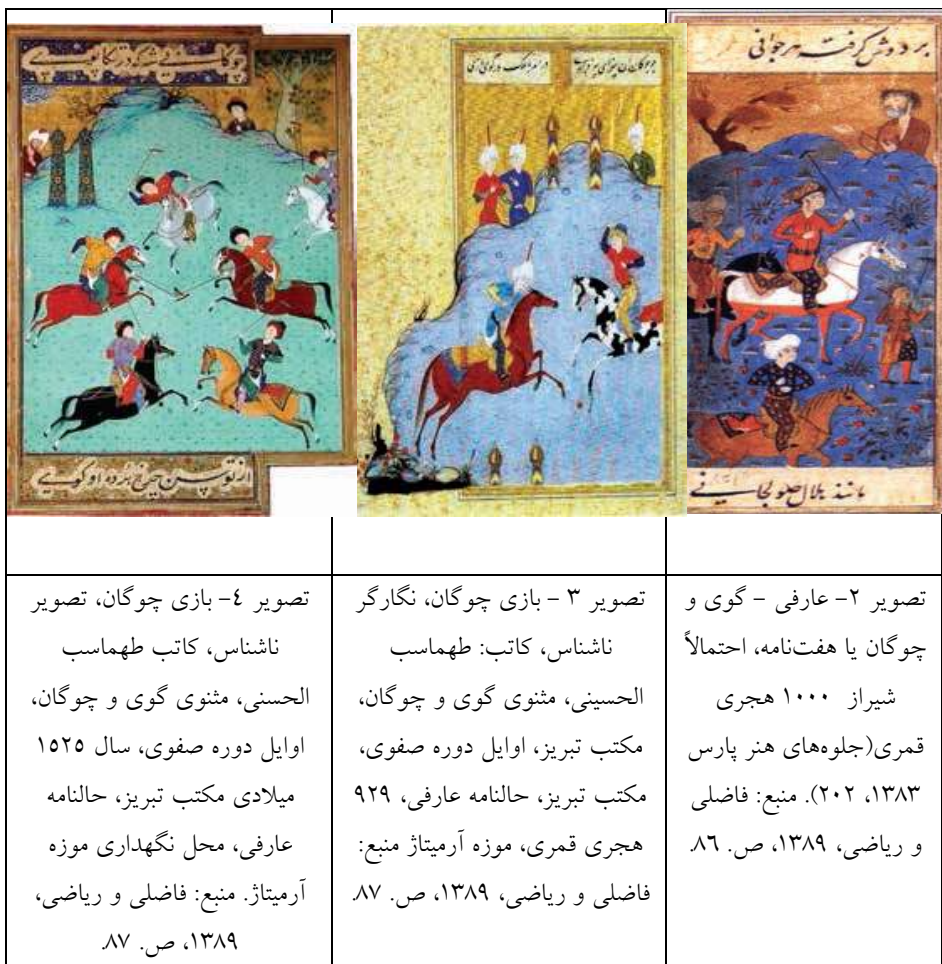 بر دوش گرفته هر جوانی
مانند هلال صولجانی
چوگانی شه که در تکاپوی
از توسن چرخ برده او گوی
تصویر ۲- عارفی – گوی و
چوگان یا هفت‌نامه، احتمالاً
شیراز ۱۰۰۰ هجری
قمری(جلوه‌های هنر پارس
۱۳۸۳، ۲۰۲). منبع: فاضلی
و ریاضی، ۱۳۸۹، ص. ۸٦.
تصویر ۳ – بازی چوگان، نگارگر
ناشناس، کاتب: طهماسب
الحسینی، مثنوی گوی و چوگان،
مکتب تبریز، اوایل دوره صفوی،
مکتب تبریز، حالنامه عارفی، ۹۲۹
هجری قمری، موزه آرمیتاژ منبع:
فاضلی و ریاضی، ۱۳۸۹، ص. ۸۷.
تصویر ٤– بازی چوگان، تصویر
ناشناس، کاتب طهماسب
الحسنی، مثنوی گوی و چوگان،
اوایل دوره صفوی، سال ۱٥۲٥
میلادی مکتب تبریز، حالنامه
عارفی، محل نگهداری موزه
آرمیتاژ. منبع: فاضلی و ریاضی،
۱۳۸۹، ص. ۸۷.